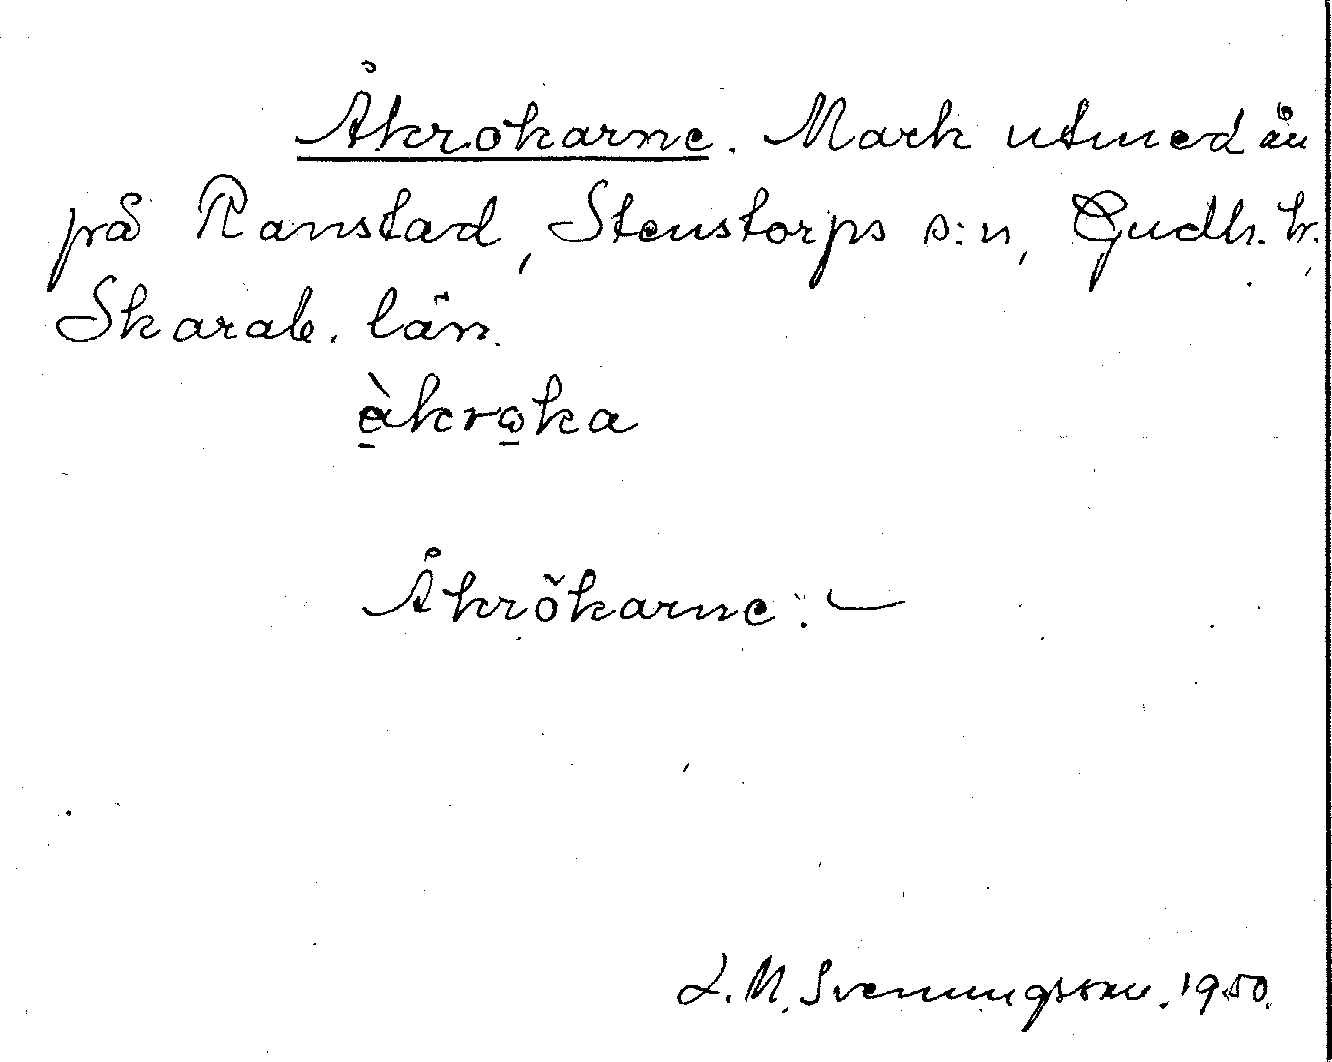 Åkrokarne. Mark utmed ån
på Ranstad, Stenstorps s:n, Gudh. hr.,
Skarab. län.
àkrωka
Åkrŏkarne: –
L. M. Svenungsson. 1950.